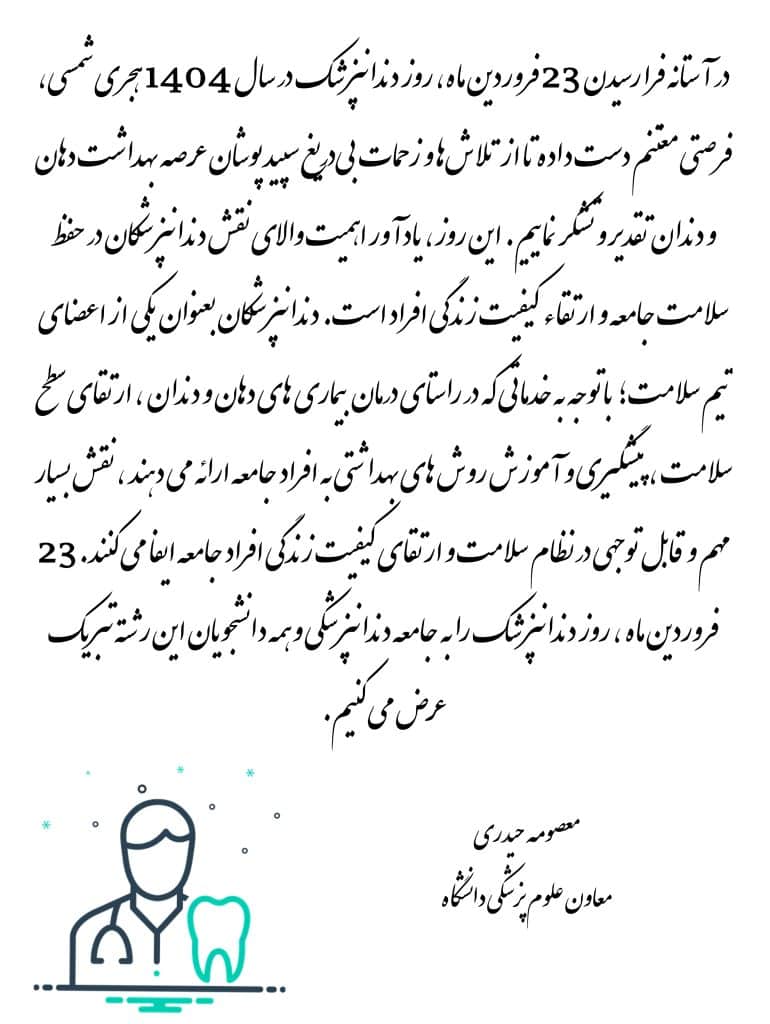 در آستانه فرارسیدن 23 فروردین ماه، روز دندانپزشک در سال 1404 هجری شمسی،
فرصتی مغتنم دست داده تا از تلاش ها و زحمات بی دریغ سپید پوشان عرصه بهداشت دهان
و دندان تقدیر و تشکر نماییم. این روز، یادآور اهمیت والای نقش دندانپزشکان در حفظ
سلامت جامعه و ارتقاء کیفیت زندگی افراد است. دندانپزشکان بعنوان یکی از اعضای
تیم سلامت؛ با توجه به خدماتی که در راستای درمان بیماری های دهان و دندان، ارتقای سطح
سلامت، پیشگیری و آموزش روش های بهداشتی به افراد جامعه ارائه می دهند، نقش بسیار
مهم و قابل توجهی در نظام سلامت و ارتقای کیفیت زندگی افراد جامعه ایفا می کنند. 23
فروردین ماه، روز دندانپزشک را به جامعه دندانپزشکی و همه دانشجویان این رشته تبریک
عرض می کنیم.
معصومه حیدری
معاون علوم پزشکی دانشگاه